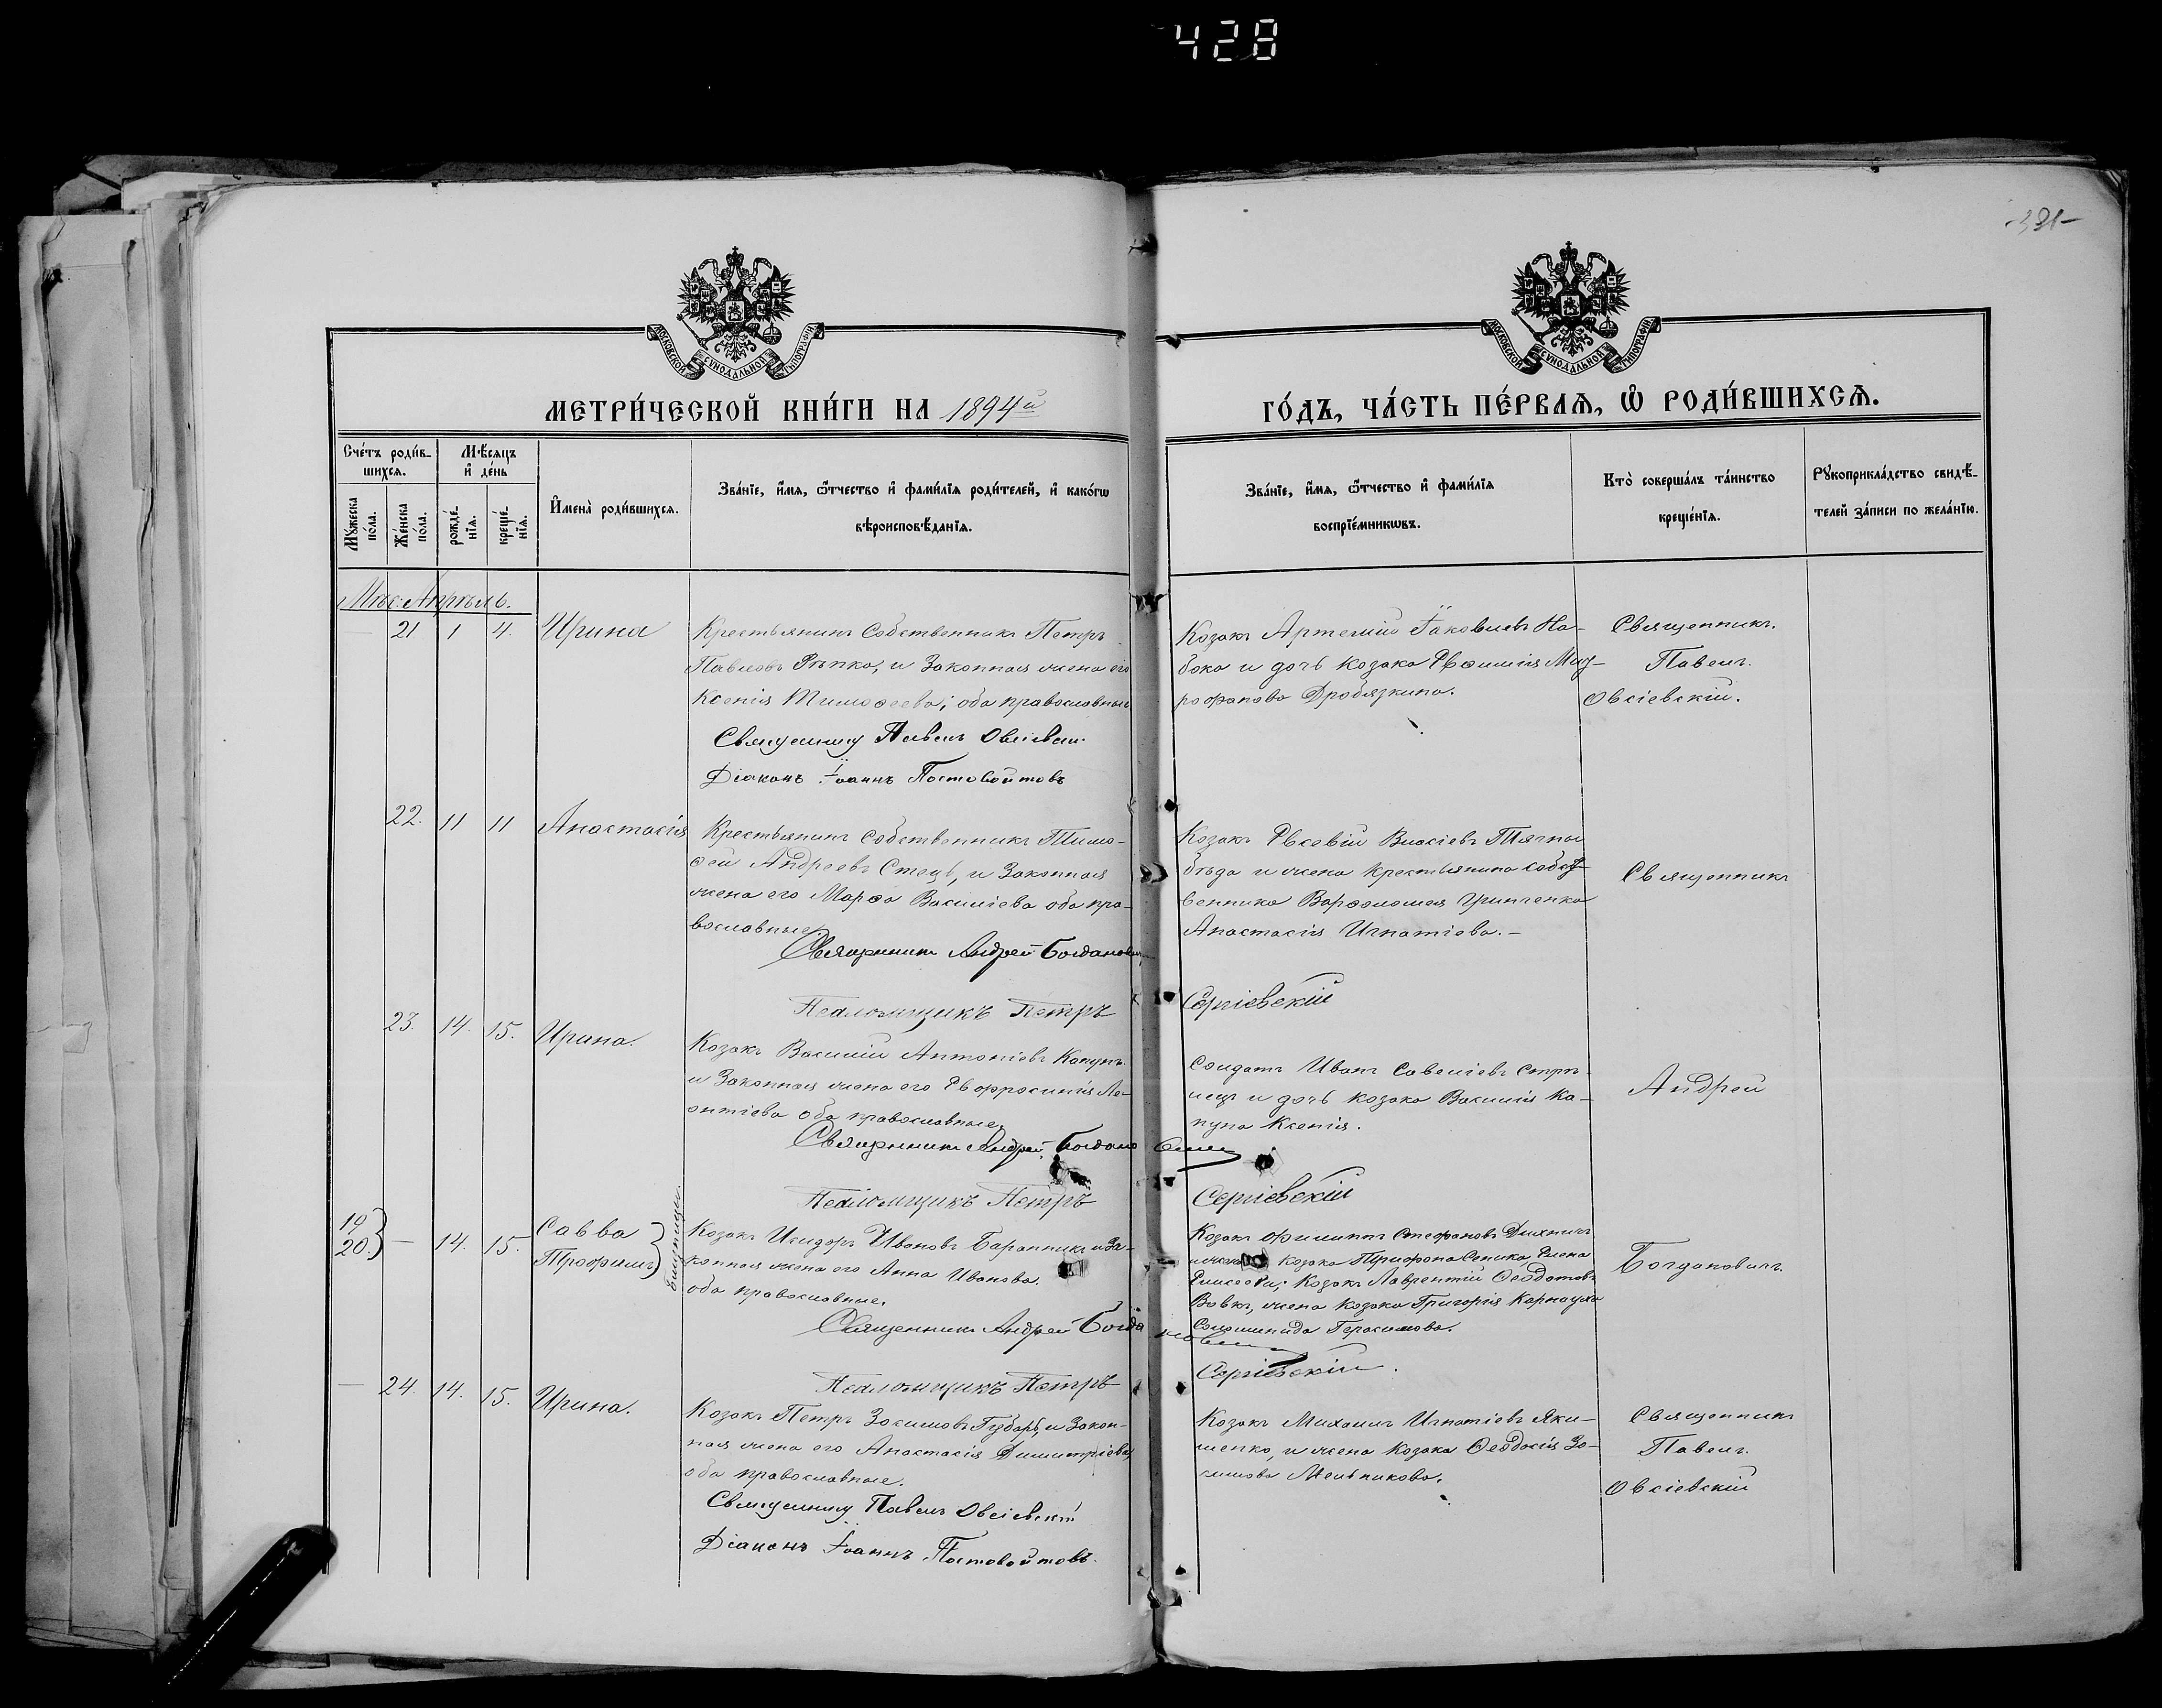 428
-391-
МОСКОВСКОЙ СѴНОДАЛЬНОЙ ТИПОГРАФІИ
МОСКОВСКОЙ СѴНОДАЛЬНОЙ ТИПОГРАФІИ
МЕТРИ́ЧЕСКОЙ КНИ́ГИ НА 1894й
ГО́ДЪ, ЧА́СТЬ ПЕ́РВАѦ, Ѡ РОДИ́ВШИХСѦ.
Сче́тъ роди́в-
шихсѧ.
Мꙋ́жеска по́ла.
Же́нска по́ла.
Мѣ́сѧцъ
и҆ де́нь
рожде́-
нїѧ.
креще́-
нїѧ.
И҆мена̀ роди́вшихсѧ.
Зва́нїе, и҆́мѧ, ѻ҆́тчество и҆ фами́лїѧ роди́телей, и҆ како́гѡ
вѣроисповѣ́данїѧ.
Зва́нїе, и҆́мѧ, ѻ҆́тчество и҆ фами́лїѧ
воспрїе́мникѡвъ.
Кто̀ соверша́лъ та́инство
креще́нїѧ.
Рꙋкоприкла́дство свидѣ́-
телей за́писи по жела́нїю.
Мѣс: Апрѣль.
— 21 1 4. Ирина
Крестьянинъ Собственникъ Петръ
Павловъ Рѣпка, и Законная жена его
Ксенія Тимоѳеева; оба православные
Священникъ Павелъ Овсіевскій
Діаконъ Іоаннъ Постовойтовъ
Козакъ Артемій Іаковлевъ На-
бока и дочь козака Евѳимія Мит-
рофанова Дробязкина.
Священникъ.
Павелъ.
Овсіевскій.
22. 11 11 Анастасія
Крестьянинъ Собственникъ Тимо-
ѳей Андреевъ Стець, и Законная
жена его Марѳа Василіева оба пра-
вославные
Священникъ Андрей Богданович
Псаломщикъ Петръ Сергіевскій
Козакъ Евсевій Власіевъ Тягны
бѣда и жена крестьянина собст-
венника Варѳоломея Гринченка
Анастасія Игнатіева. —
Священникъ
23. 14. 15. Ирина.
Козакъ Василій Антоніевъ Капунъ.
и Законная жена его Евфросинія Ле-
онтіева оба православные.
Священникъ Андрей Богданович
Псаломщикъ Петръ Сергіевскій
Солдатъ Иванъ Савеліевъ Стрѣ-
лецъ и дочь козака Василія Ка-
пуна Ксенія.
Андрей
19
20.} — 14. 15. Савва
Трофимъ} близнецы.
Козакъ Исидоръ Ивановъ Баранникъ и За-
конная жена его Анна Иванова.
оба православные.
Священникъ Андрей Богданович
Псаломщикъ Петръ Сергіевскій.
Козакъ Филиппъ Стефановъ Дихничъ
и жена козака Трифона Сепика Елена
Елисеева; Козакъ Лаврентій Ѳеодотовъ
Вовкъ, жена козака Григорія Карнауха
Соломинида Герасимова.
Богдановичъ.
— 24. 14. 15. Ирина.
Козакъ Петръ Зосимовъ Губарь, и Закон-
ная жена его Анастасія Димитріева,
оба православные.
Священникъ Павелъ Овсіевскій
Діаконъ Іоаннъ Постовойтовъ.
Козакъ Михаилъ Игнатіевъ Яки-
менко, и жена козака Ѳеодосія Зо-
симова Мельникова.
Священникъ
Павелъ.
Овсіевскій